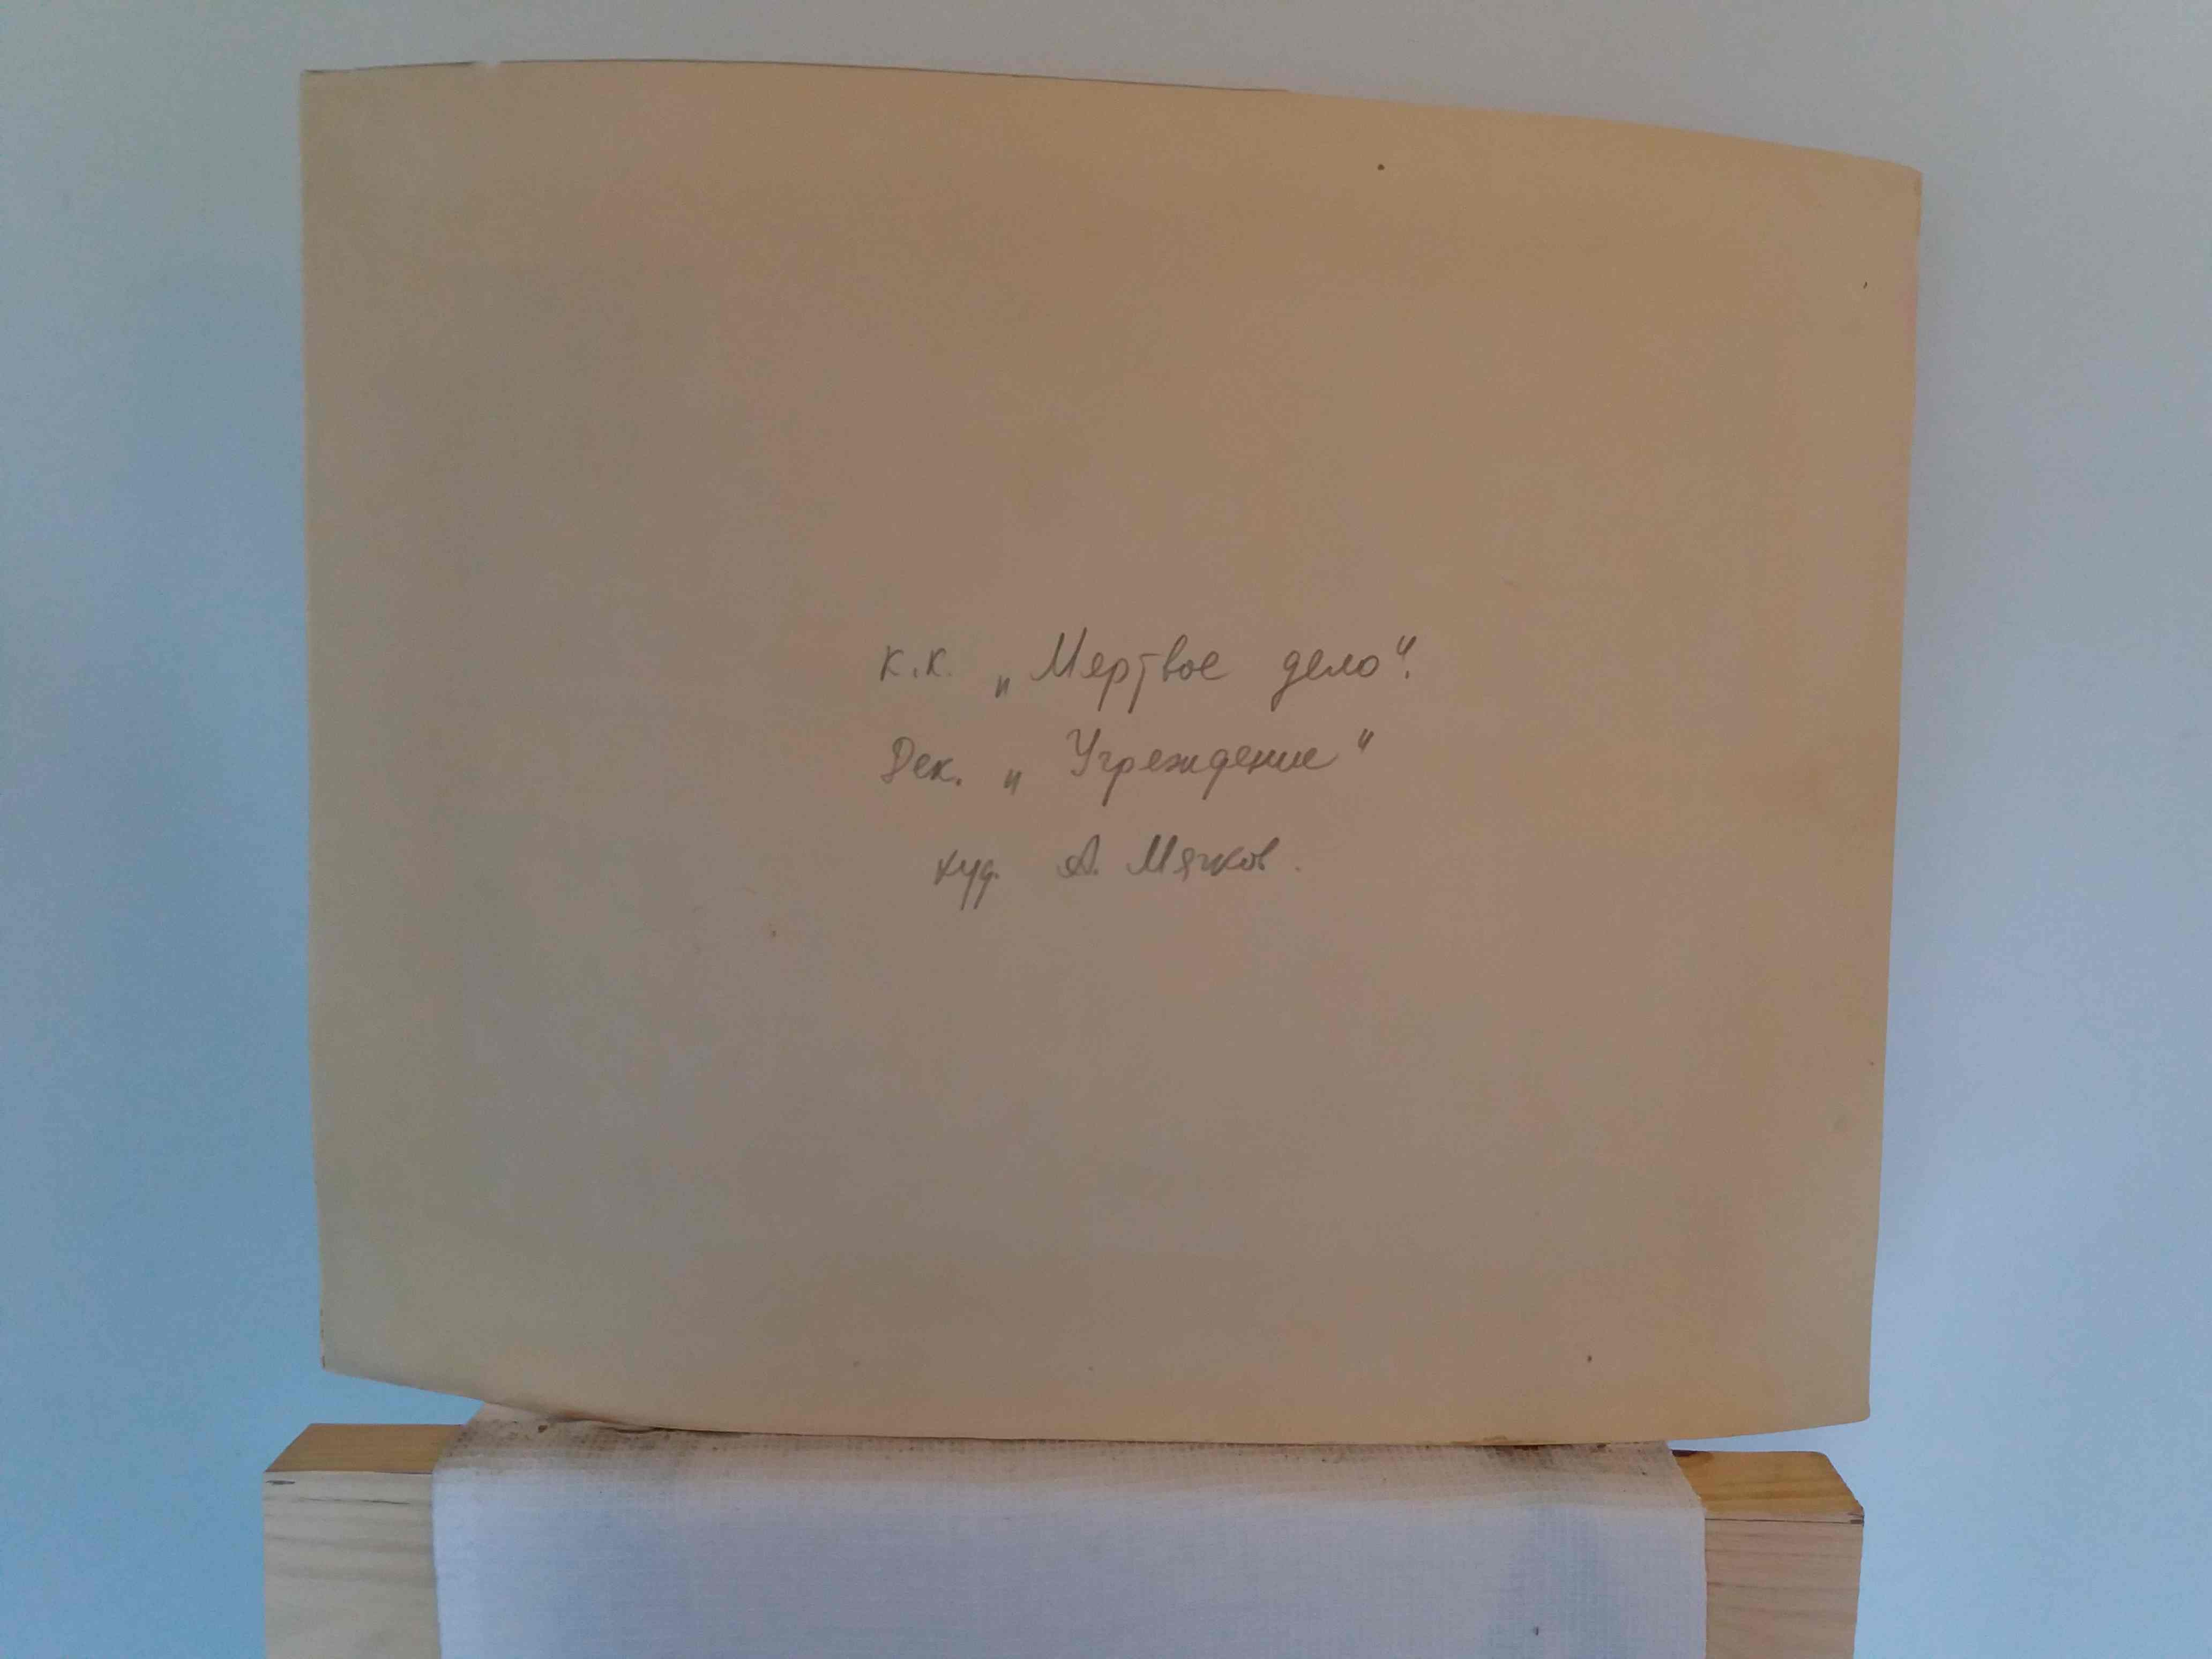 к.к. „Мертвое дело".
Дек. „Учреждение"
худ. А. Мягков.